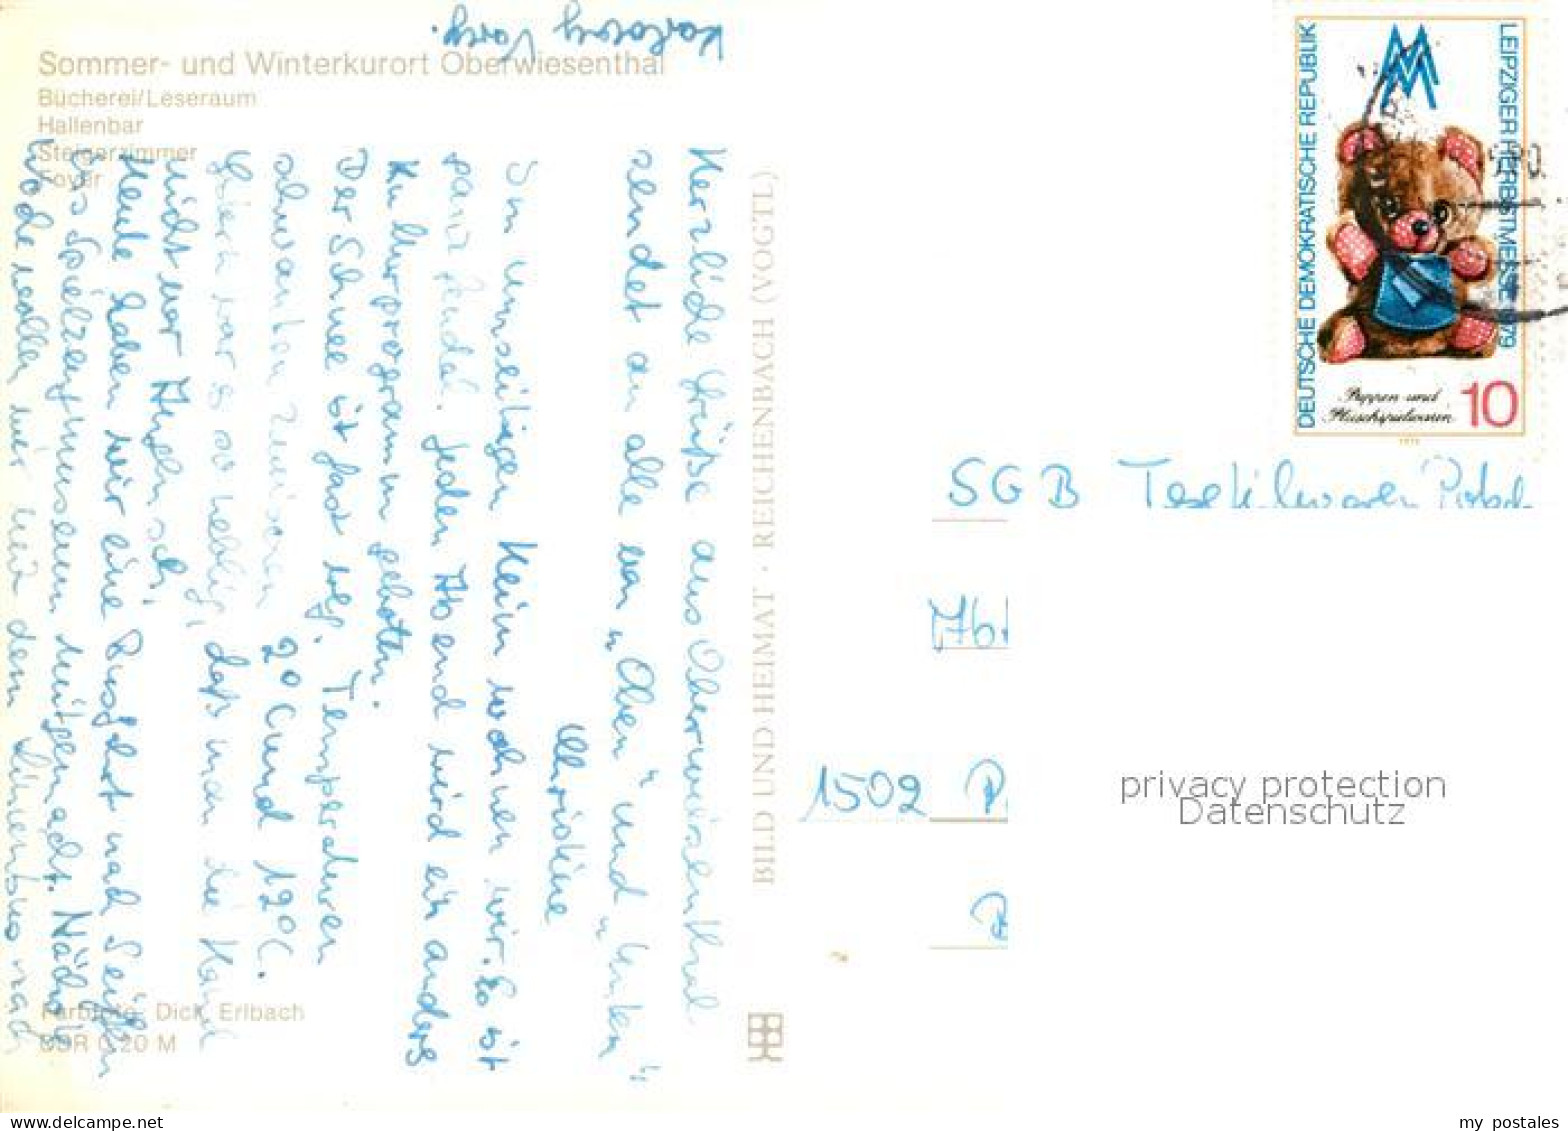 Sommer- und Winterkurort Oberwiesenthal
Bücherei/Leseraum
Hallenbar
Steigerzimmer
Foyer
Herzliche Grüße aus Oberwiesenthal
sendet an alle von „Oben" und „Unten"
Christine
Im umseitigen Heim wohnen wir. Es ist
ganz feudal. Jeden Abend wird ein anders
Kulturprogramm geboten.
Der Schnee ist fast weg. Temperaturen
schwanken zwischen 2° C und 12° C.
Gestern war es so neblig, daß man die Hand
nicht vor Augen sah.
Heute haben wir eine Busfahrt nach Seiffen
ins Spielzeugmuseum mitgemacht. Nächste
Woche wollen wir mit dem Linienbus nach
Karlovy Vary.
Farbfoto: Dick, Erlbach
DDR 0,20 M
BILD UND HEIMAT · REICHENBACH (VOGTL)
DEUTSCHE DEMOKRATISCHE REPUBLIK
LEIPZIGER HERBSTMESSE 1979
MM
Puppen und
Plüschspielwaren
10
1979
SGB Textilwaren
1502
privacy protection
Datenschutz
my postales